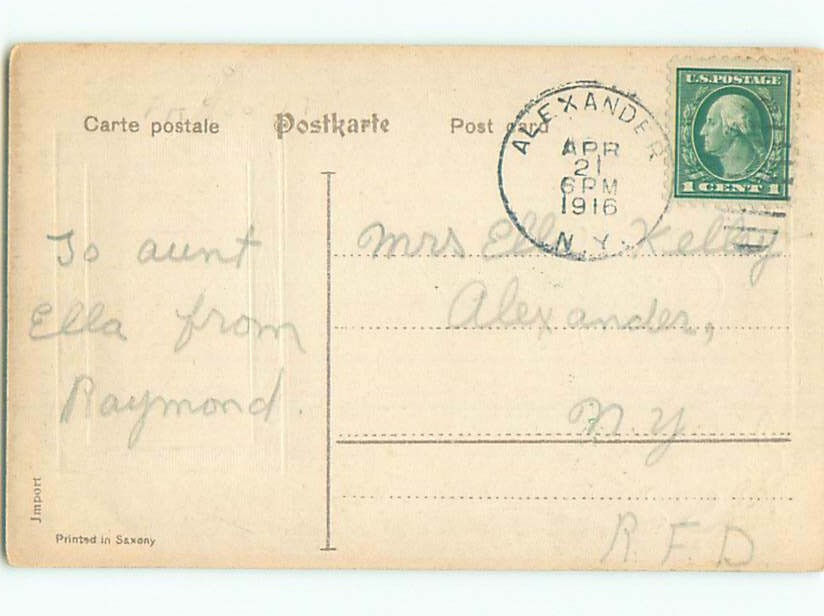 Carte postale Postkarte Post card
U.S. POSTAGE
1 CENT 1
ALEXANDER
APR
21
6 PM
1916
N.Y.
To aunt
Ella from
Raymond.
Mrs Ella Kelley
Alexander,
N.Y
R.F.D
Import
Printed in Saxony